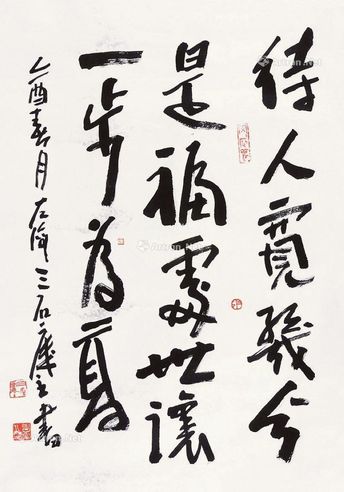 待人寬幾分
是福處世讓
一步為高
乙酉春月左海三石主書
Artron.Net